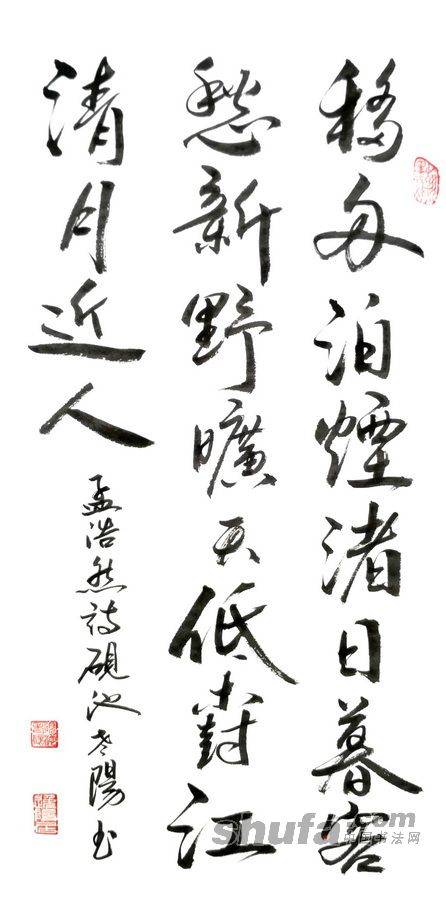 移舟泊煙渚日暮客
愁新野曠天低樹江
清月近人
孟浩然詩硯池老陽书
shufa.com
中国书法网